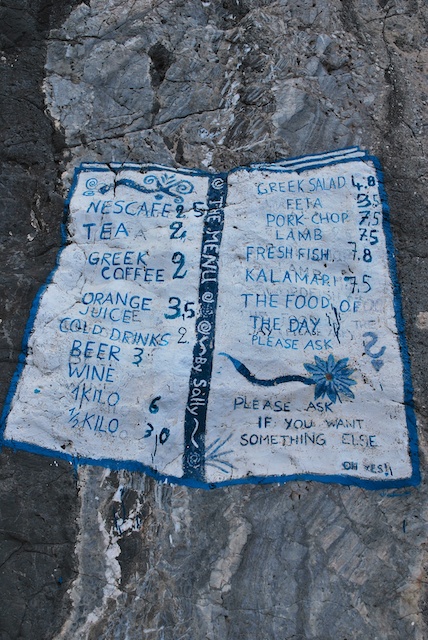 NESCAFE 2.5
TEA 2
GREEK
COFFEE 2
ORANGE
JUICEE 3.5
COLD DRINKS 2
BEER 3
WINE
1 KILO 6
1/2 KILO 3,0
THE MENU
By Sally
GREEK SALAD 4.8
FETA 3.5
PORK CHOP 7.5
LAMB 7.5
FRESH FISH 7.8
KALAMARI 7.5
THE FOOD OF
THE DAY
PLEASE ASK
PLEASE ASK
IF YOU WANT
SOMETHING ELSE
OH YES!